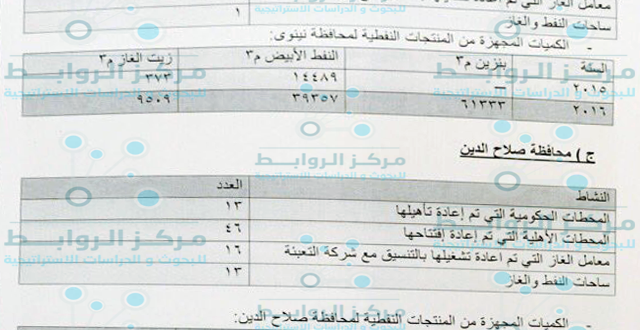 معامل الغاز التي تم اعادة
ساحات النفط والغاز ١
- الكميات المجهزة من المنتجات النفطية لمحافظة نينوى:
السنة بنزين م٣ النفط الأبيض م٣ زيت الغاز م٣
٢٠١٥ — ١٤٤٨٩ ٣٧٣
٢٠١٦ ٦١٣٣٣ ٣٩٣٥٧ ٩٥٠٩
ج ) محافظة صلاح الدين
النشاط العدد
المحطات الحكومية التي تم إعادة تأهيلها ١٣
المحطات الأهلية التي تم إعادة إفتتاحها ٤٦
معامل الغاز التي تم اعادة تشغيلها بالتنسيق مع شركة التعبئة ١٦
ساحات النفط والغاز ١٣
الكميات المجهزة من المنتجات النفطية لمحافظة صلاح الدين:
مركز الروابط
للبحوث و الدراسات الاستراتيجية